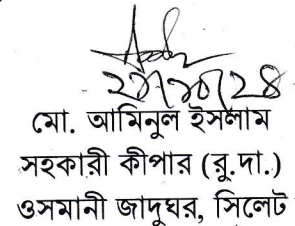 ২৯/১০/২৪
মো. আমিনুল ইসলাম
সহকারী কীপার (রু.দা.)
ওসমানী জাদুঘর, সিলেট